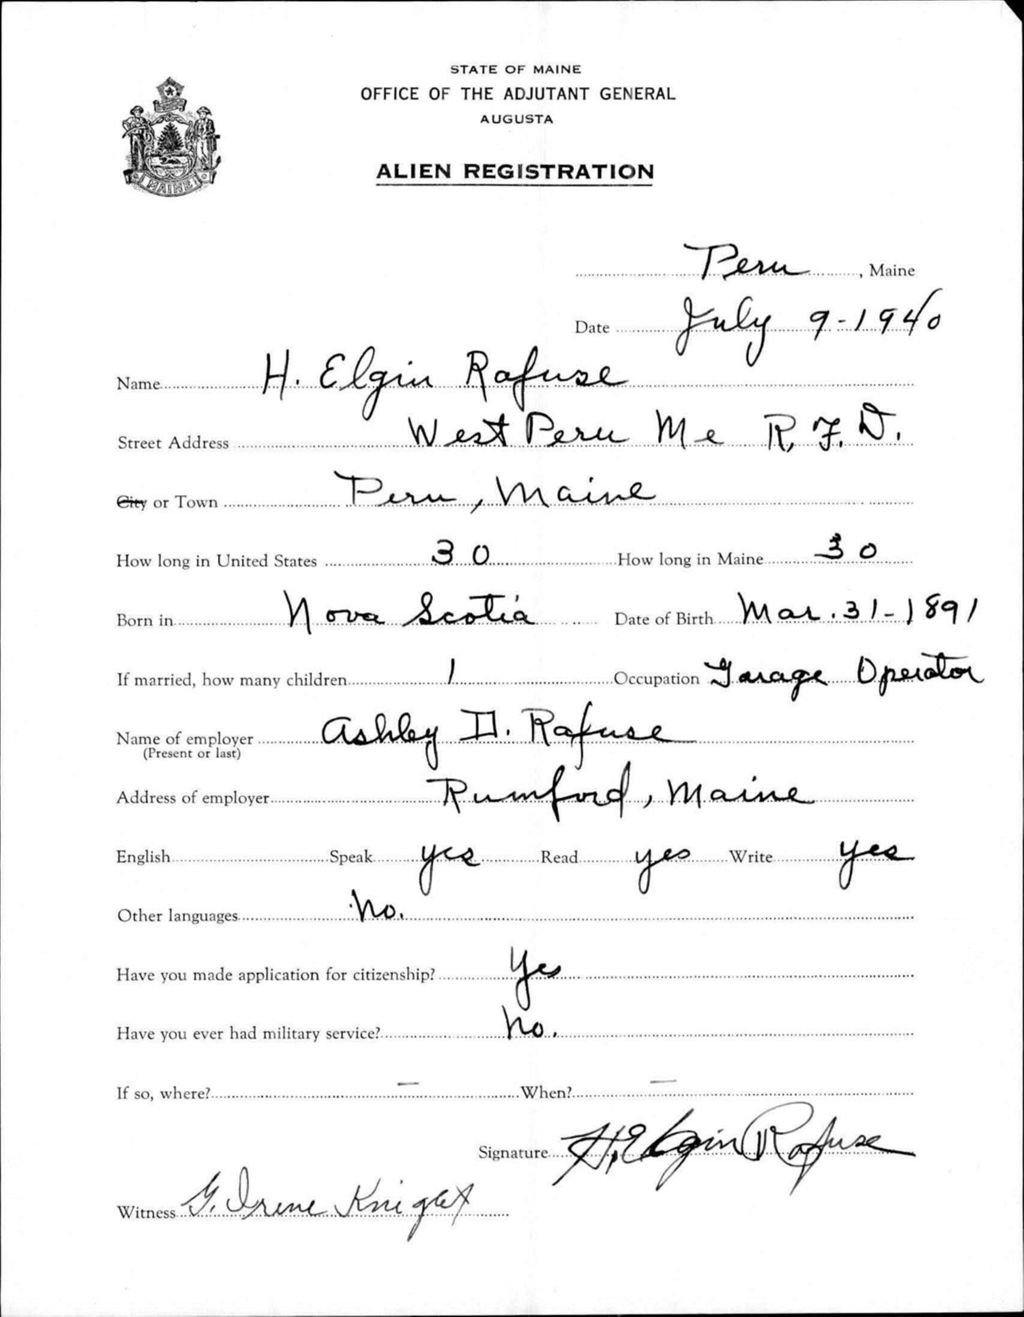 STATE OF MAINE
OFFICE OF THE ADJUTANT GENERAL
AUGUSTA
ALIEN REGISTRATION
MAINE
Peru, Maine
Date July 9-1940
Name H. Elgin Rafuse
Street Address West Peru Me R.F.D.
City or Town Peru, Maine
How long in United States 30 How long in Maine 30
Born in Nova Scotia Date of Birth Mar. 31-1891
If married, how many children 1 Occupation Garage Operator
Name of employer Ashley D. Rafuse
(Present or last)
Address of employer Rumford, Maine
English Speak yes Read yes Write yes
Other languages No.
Have you made application for citizenship? Yes
Have you ever had military service? No.
If so, where? — When? —
Signature H. Elgin Rafuse
Witness G. Irene Knight